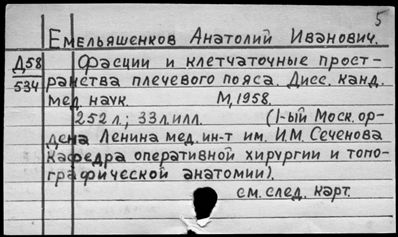 5
Емельяшенков Анатолий Иванович.
Д58 Фасции и клетчаточные прост-
534 ранства плечевого пояса. Дисс. канд.
мед. наук. М., 1958.
252 л.; 33 л. илл. (1-ый Моск. ор-
дена Ленина мед. ин-т им. И.М. Сеченова
Кафедра оперативной хирургии и топо-
графической анатомии).
см. след. карт.